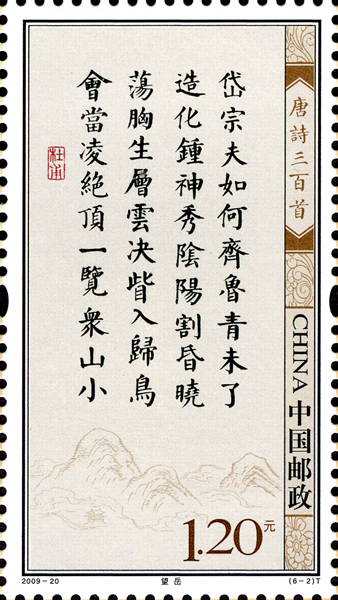 唐詩三百首
岱宗夫如何齊魯青未了
造化鍾神秀陰陽割昏曉
蕩胸生層雲决眥入歸鳥
會當凌絶頂一覽衆山小
杜甫
CHINA 中国邮政
1.20元
2009-20
望岳
(6-2)T